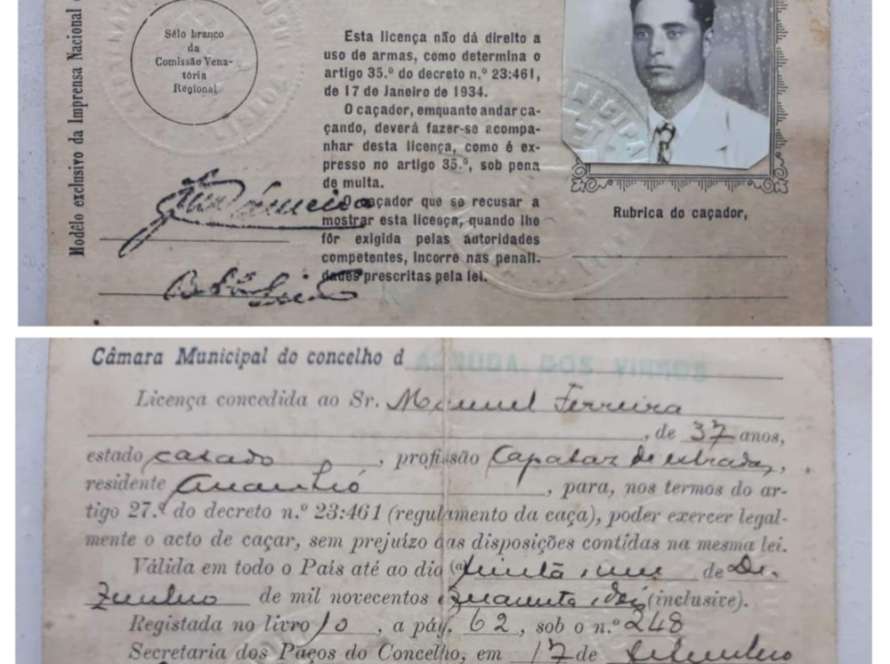 Modêlo exclusivo da Imprensa Nacional
Sêlo branco
da
Comissão Vena-
tória
Regional
Esta licença não dá direito a
uso de armas, como determina o
artigo 35.º do decreto n.º 23:461,
de 17 de Janeiro de 1934.
O caçador, emquanto andar ca-
çando, deverá fazer-se acompa-
nhar desta licença, como é ex-
presso no artigo 35.º, sob pena
de multa.
O caçador que se recusar a
mostrar esta licença, quando lhe
fôr exigida pelas autoridades
competentes, incorre nas penali-
dades prescritas pela lei.
Rubrica do caçador,
Câmara Municipal do concelho d ARRUDA DOS VINHOS
Licença concedida ao Sr. Manuel Ferreira
, de 37 anos,
estado casado, profissão Capataz de estradas,
residente, para, nos termos do ar-
tigo 27.º do decreto n.º 23:461 (regulamento da caça), poder exercer legal-
mente o acto de caçar, sem prejuízo das disposições contidas na mesma lei.
Válida em todo o País até ao dia (a) trinta e um de De-
zembro de mil novecentos e quarenta e dois (inclusive).
Registada no livro 10, a pág. 62, sob o n.º 248
Secretaria dos Paços do Concelho, em 17 de Setembro